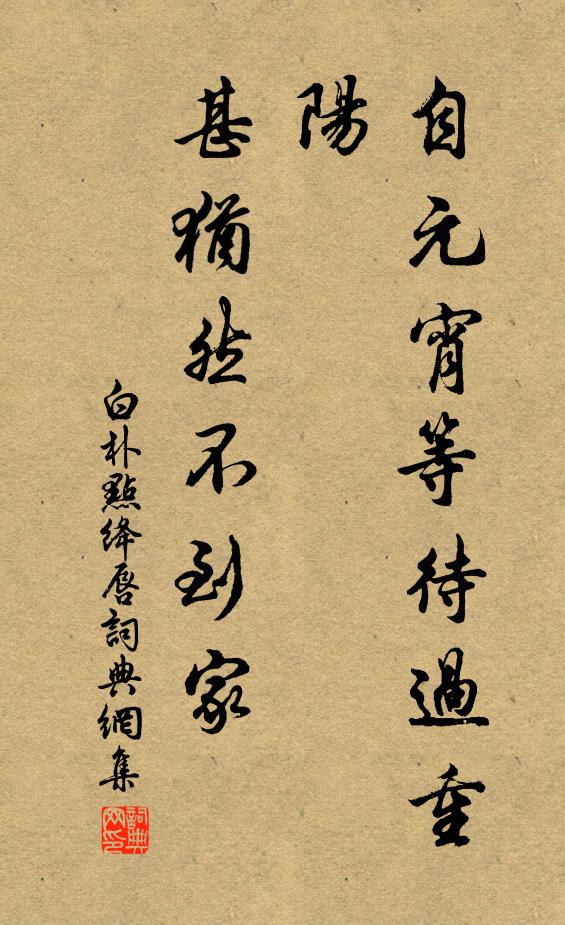 自元宵等待過重
陽
甚猶然不到家
白朴點絳唇詞典網集
詞典
网印